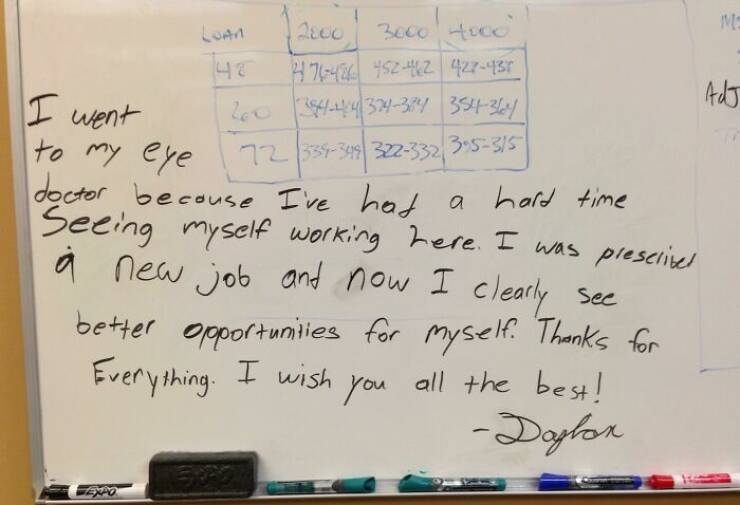 LOAN 2000 3000 4000
48 476-486 452-462 428-438
60 374-384 354-364
72 339-349 322-332 305-315
AdJ
I went
to my eye
doctor because I've had a hard time
Seeing myself working here. I was prescribed
a new job and now I clearly see
better opportunities for myself. Thanks for
Everything. I wish you all the best!
EXPO
EXPO